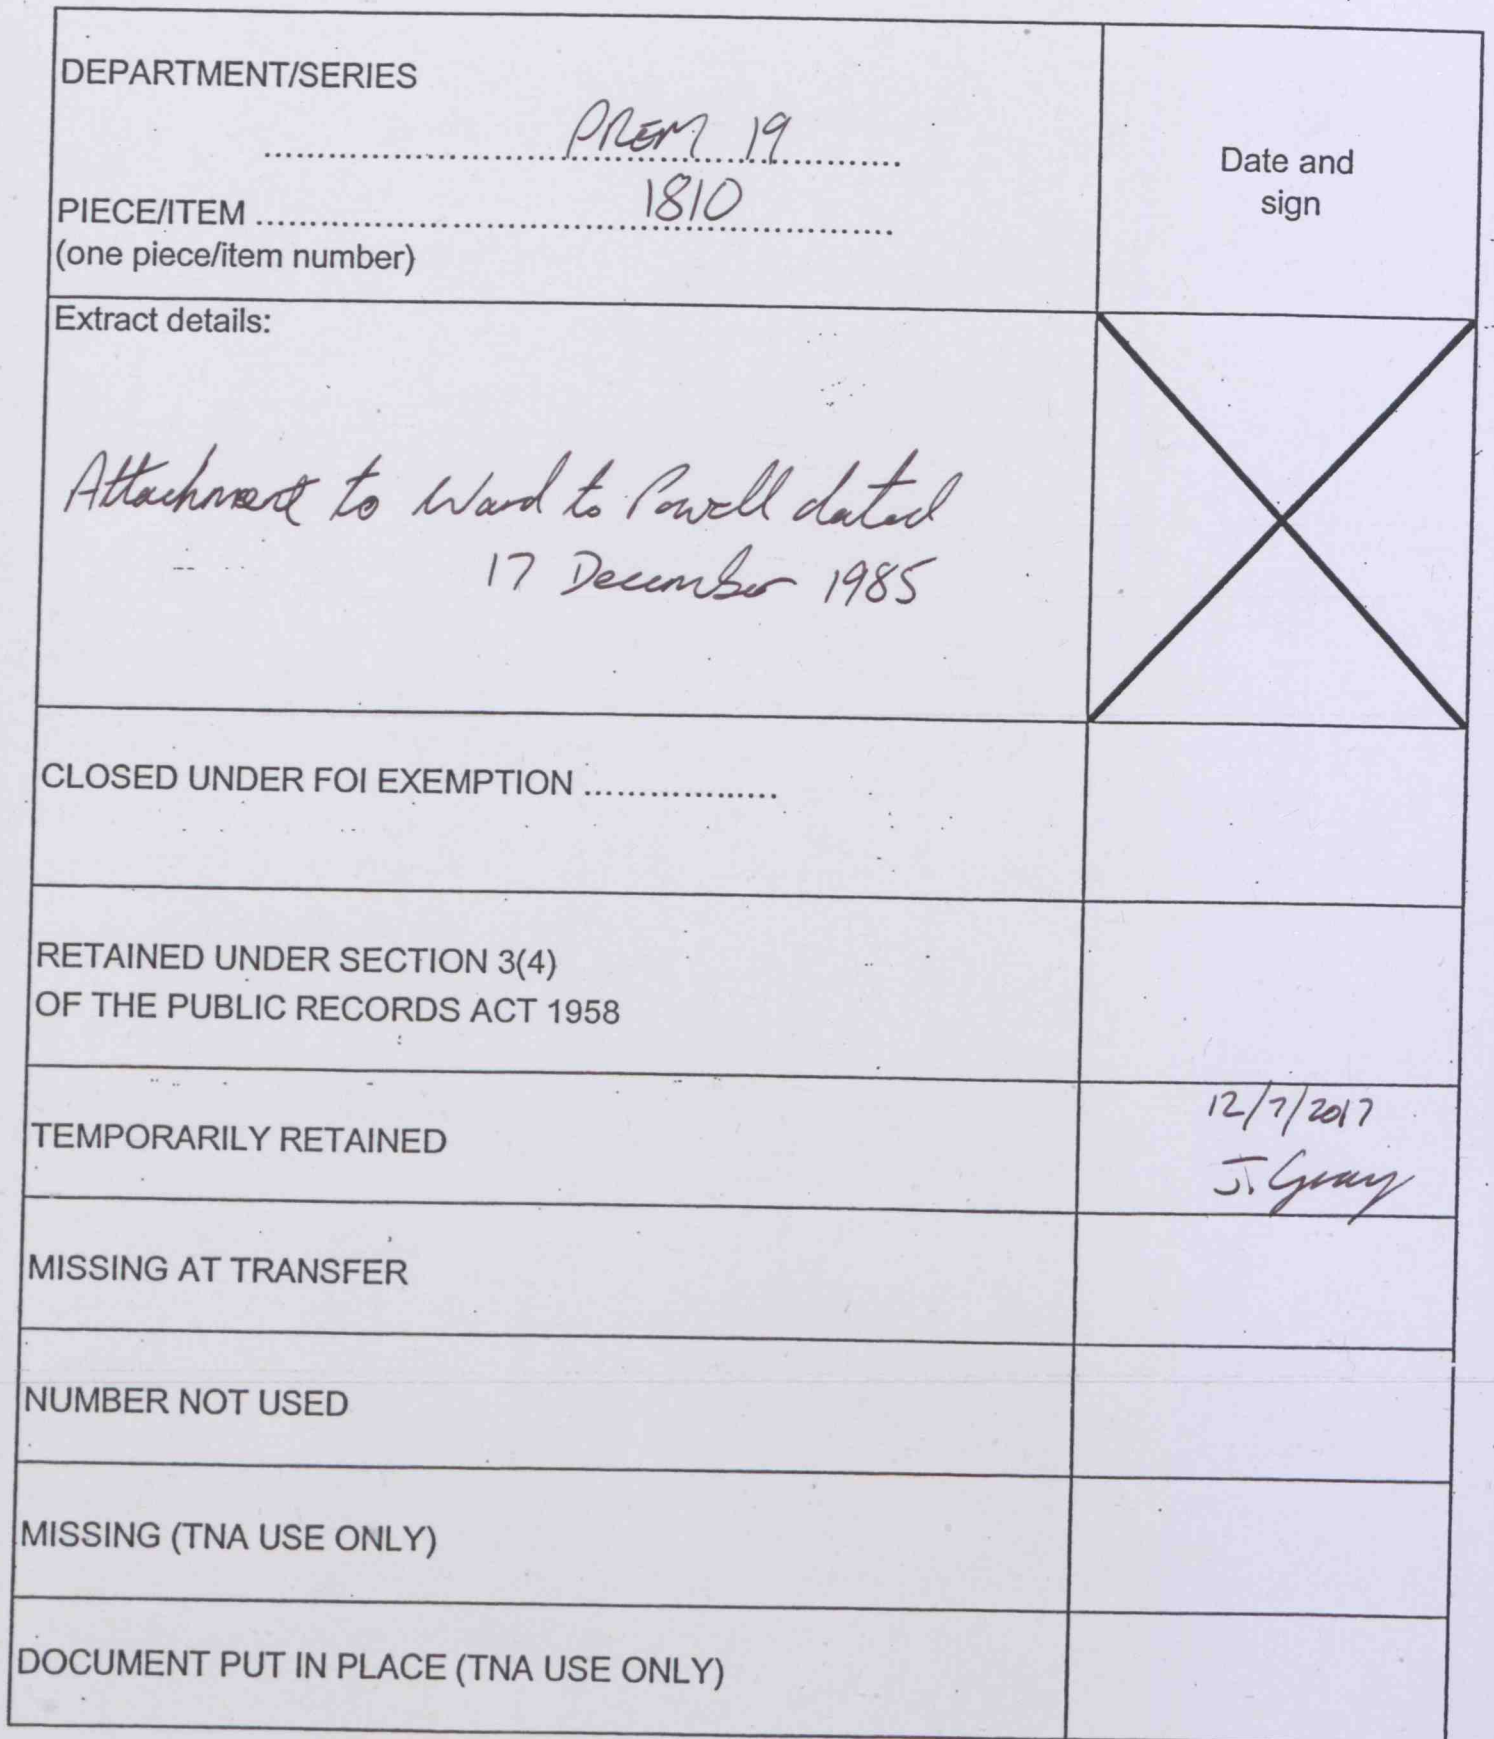 DEPARTMENT/SERIES
PREM 19
PIECE/ITEM 1810
(one piece/item number)
Date and
sign
Extract details:
Attachment to Ward to Powell dated
17 December 1985
CLOSED UNDER FOI EXEMPTION ..................
RETAINED UNDER SECTION 3(4)
OF THE PUBLIC RECORDS ACT 1958
TEMPORARILY RETAINED
12/7/2017
J. Gray
MISSING AT TRANSFER
NUMBER NOT USED
MISSING (TNA USE ONLY)
DOCUMENT PUT IN PLACE (TNA USE ONLY)